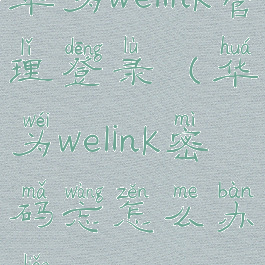 华为welink管
lǐ dēng lù huá
理登录（华
wéi mì
为welink密
mǎ wàng zěn me bàn
码忘怎么办